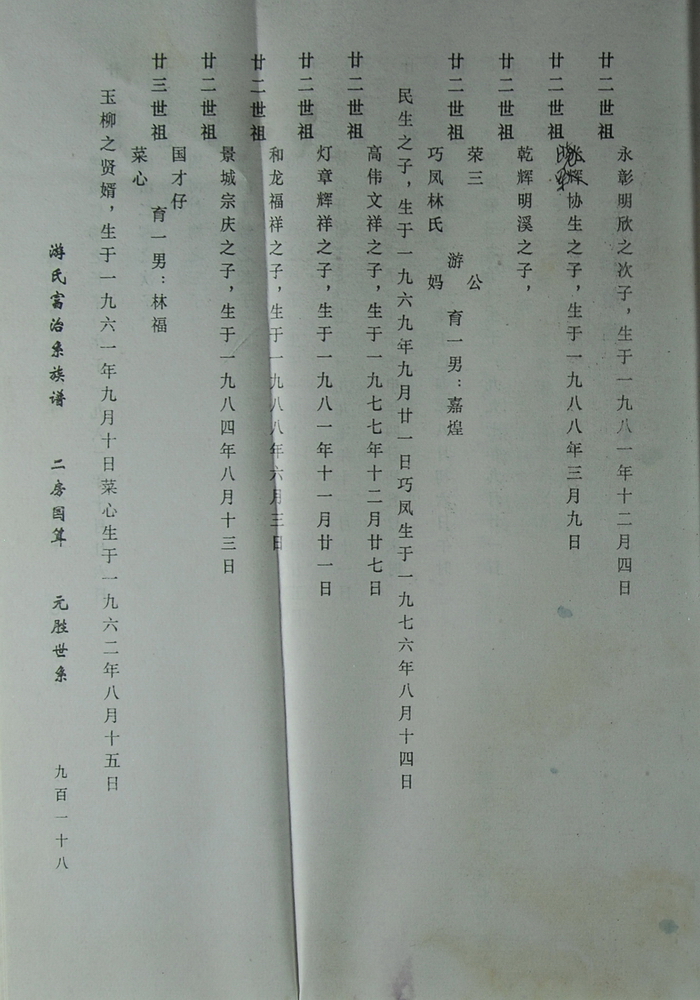 廿二世祖
永彰明欣之次子，生于一九八一年十二月四日
廿二世祖
辉协生之子，生于一九八八年三月九日
廿二世祖
乾辉明溪之子，
廿二世祖
荣三 公
游 育一男：嘉煌
巧凤林氏 妈
民生之子，生于一九六九年九月廿一日巧凤生于一九七六年八月十四日
廿二世祖
高伟文祥之子，生于一九七七年十二月廿七日
廿二世祖
灯章辉祥之子，生于一九八一年十一月廿一日
廿二世祖
和龙福祥之子，生于一九八八年六月三日
廿二世祖
景城宗庆之子，生于一九八四年八月十三日
廿三世祖
国才仔
育一男：林福
菜心
玉柳之贤婿，生于一九六一年九月十日菜心生于一九六二年八月十五日
游氏富治系族谱 二房国算 元胜世系 九百一十八